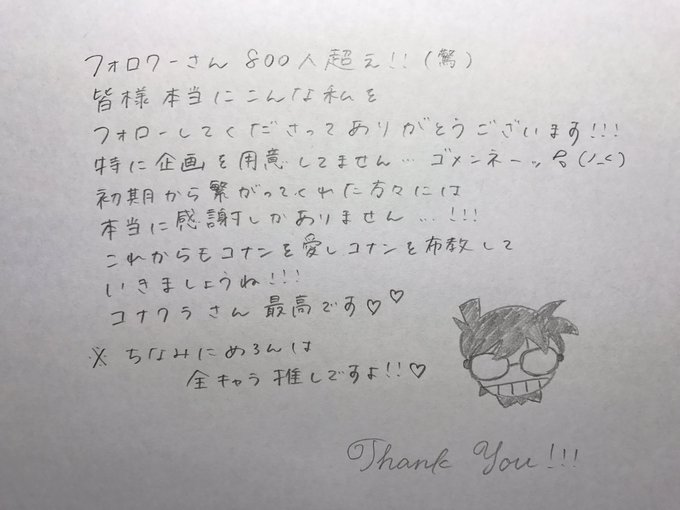 フォロワーさん 800人超え!!(驚)
皆様本当にこんな私を
フォローしてくださってありがとうございます!!!
特に企画を用意してません…ゴメンネーッ
初期から繋がってくれた方々には
本当に感謝しかありません…!!!
これからもコナンを愛しコナンを布教して
いきましょうね!!!
コナクラさん 最高です♡♡
※ ちなみにめろんは
全キャラ推しですよ!!♡
Thank You!!!